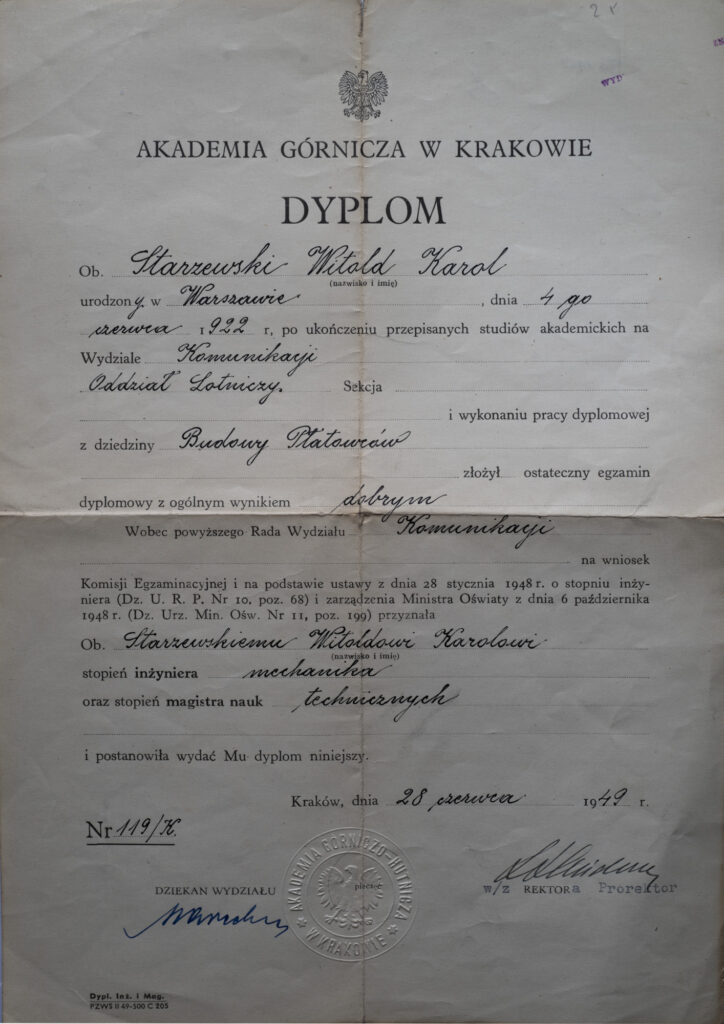 2
WYD
AKADEMIA GÓRNICZA W KRAKOWIE
DYPLOM
Ob. Starzewski Witold Karol
(nazwisko i imię)
urodzony w Warszawie, dnia 4 go
czerwca 1922 r, po ukończeniu przepisanych studiów akademickich na
Wydziale Komunikacji
Oddział Lotniczy. Sekcja
i wykonaniu pracy dyplomowej
z dziedziny Budowy Płatowców
złożył ostateczny egzamin
dyplomowy z ogólnym wynikiem dobrym
Wobec powyższego Rada Wydziału Komunikacji
na wniosek
Komisji Egzaminacyjnej i na podstawie ustawy z dnia 28 stycznia 1948 r. o stopniu inży-
niera (Dz. U. R. P. Nr 10, poz. 68) i zarządzenia Ministra Oświaty z dnia 6 października
1948 r. (Dz. Urz. Min. Ośw. Nr 11, poz. 199) przyznała
Ob. Starzewskiemu Witoldowi Karolowi
(nazwisko i imię)
stopień inżyniera mechanika
oraz stopień magistra nauk technicznych
i postanowiła wydać Mu dyplom niniejszy.
Kraków, dnia 28 czerwca 1949 r.
Nr 119/K.
AKADEMIA GÓRNICZO-HUTNICZA
W KRAKOWIE
pieczęć
DZIEKAN WYDZIAŁU
w/z REKTORa Prorektor
Dypl. Inż. i Mag.
PZWS II 49-500 C 205